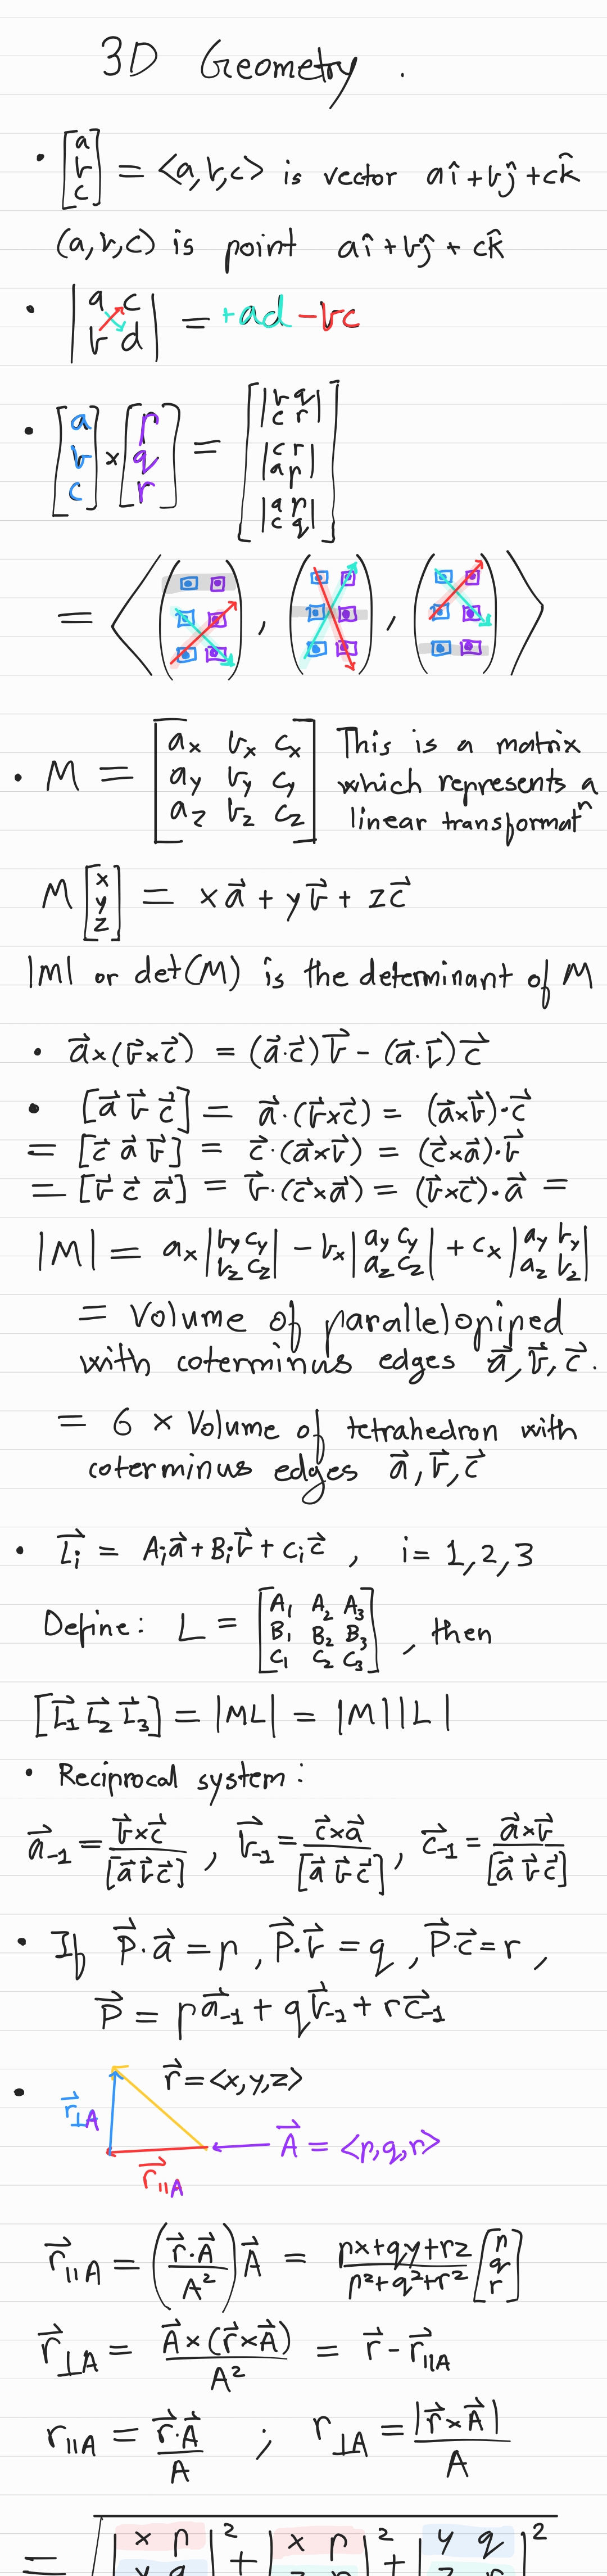 3D Geometry .
• [a b c] = <a, b, c> is vector aî + bĵ + ck̂
(a, b, c) is point aî + bĵ + ck̂
• |a c; b d| = +ad - bc
• [a b c] × [p q r] = [|b q; c r| |c r; a p| |a p; c q|]
= < ( ) , ( ) , ( ) >
• M = [a_x b_x c_x; a_y b_y c_y; a_z b_z c_z] This is a matrix
which represents a
linear transformatⁿ
M [x y z] = x a⃗ + y b⃗ + z c⃗
|M| or det(M) is the determinant of M
• a⃗ × (b⃗ × c⃗) = (a⃗·c⃗) b⃗ - (a⃗·b⃗) c⃗
• [a⃗ b⃗ c⃗] = a⃗·(b⃗ × c⃗) = (a⃗ × b⃗)·c⃗
= [c⃗ a⃗ b⃗] = c⃗·(a⃗ × b⃗) = (c⃗ × a⃗)·b⃗
= [b⃗ c⃗ a⃗] = b⃗·(c⃗ × a⃗) = (b⃗ × c⃗)·a⃗ =
|M| = a_x |b_y c_y; b_z c_z| - b_x |a_y c_y; a_z c_z| + c_x |a_y b_y; a_z b_z|
= Volume of parallelopiped
with coterminus edges a⃗, b⃗, c⃗.
= 6 × Volume of tetrahedron with
coterminus edges a⃗, b⃗, c⃗
• L⃗_i = A_i a⃗ + B_i b⃗ + C_i c⃗ , i = 1, 2, 3
Define: L = [A₁ A₂ A₃; B₁ B₂ B₃; C₁ C₂ C₃] , then
[L⃗₁ L⃗₂ L⃗₃] = |ML| = |M||L|
• Reciprocal system:
a⃗₋₁ = (b⃗ × c⃗)/[a⃗ b⃗ c⃗] , b⃗₋₁ = (c⃗ × a⃗)/[a⃗ b⃗ c⃗] , c⃗₋₁ = (a⃗ × b⃗)/[a⃗ b⃗ c⃗]
• If P⃗·a⃗ = p , P⃗·b⃗ = q , P⃗·c⃗ = r ,
P⃗ = p a⃗₋₁ + q b⃗₋₁ + r c⃗₋₁
• r⃗ = <x, y, z>
r⃗⊥A
A⃗ = <p, q, r>
r⃗∥A
r⃗∥A = (r⃗·A⃗/A²) A⃗ = (px + qy + rz)/(p² + q² + r²) [p q r]
r⃗⊥A = A⃗ × (r⃗ × A⃗)/A² = r⃗ - r⃗∥A
r∥A = r⃗·A⃗/A ; r⊥A = |r⃗ × A⃗|/A
= √ |x p; y q|² + |x p; z r|² + |y q; z r|²